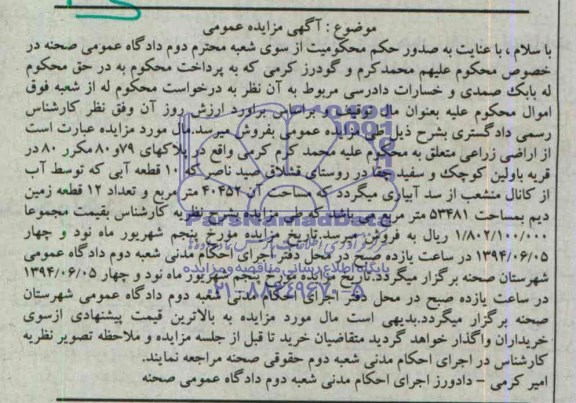 موضوع : آگهی مزایده عمومی
با سلام ، با عنایت به صدور حکم محکومیت از سوی شعبه محترم دوم دادگاه عمومی صحنه در
خصوص محکوم علیهم محمدکرم و گودرز کرمی که به پرداخت محکوم به در حق محکوم
له بابک صمدی و خسارات دادرسی مربوط به آن نظر به درخواست محکوم له از شعبه فوق
اموال محکوم علیه بعنوان مال توقیف و براساس برآورد ارزش روز آن وفق نظر کارشناس
رسمی دادگستری بشرح ذیل طی مزایده عمومی بفروش میرسد.مال مورد مزایده عبارت است
از اراضی زراعی متعلق به محکوم علیه محمد کرم کرمی واقع در پلاکهای ۷۹و۸۰ مکرر ۸۰ در
قریه باولین کوچک و سفید چقا در روستای قشلاق صید ناصر که ۱۰ قطعه آبی که توسط آب
از کانال منشعب از سد آبیاری میگردد که مساحت آن ۴۰۴۵۲ متر مربع و تعداد ۱۲ قطعه زمین
دیم بمساحت ۵۳۴۸۱ متر مربع می باشد که طی مزایده بشرح نظریه کارشناس بقیمت مجموعا
۱/۸۰۲/۱۰۰/۰۰۰ ریال به فروش میرسد.تاریخ مزایده مورخ پنجم شهریور ماه نود و چهار
۱۳۹۴/۰۶/۰۵ در ساعت یازده صبح در محل دفتر اجرای احکام مدنی شعبه دوم دادگاه عمومی
شهرستان صحنه برگزار میگردد.تاریخ مزایده مورخ پنجم شهریور ماه نود و چهار ۱۳۹۴/۰۶/۰۵
در ساعت یازده صبح در محل دفتر اجرای احکام مدنی شعبه دوم دادگاه عمومی شهرستان
صحنه برگزار میگردد.بدیهی است مال مورد مزایده به بالاترین قیمت پیشنهادی ازسوی
خریداران واگذار خواهد گردید متقاضیان خرید تا قبل از جلسه مزایده و ملاحظه تصویر نظریه
کارشناس در اجرای احکام مدنی شعبه دوم حقوقی صحنه مراجعه نمایند.
امیر کرمی – دادورز اجرای احکام مدنی شعبه دوم دادگاه عمومی صحنه
ParsNamadData
پایگاه اطلاع رسانی مناقصه و مزایده
۰۲۱-۸۸۳۴۹۶۷۰-۵